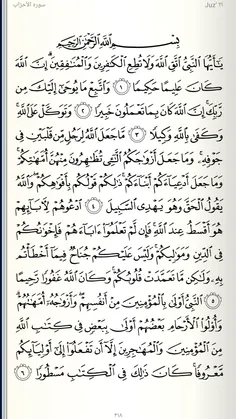 سورة الأحزاب
Juz' ٢١
بِسْمِ ٱللَّهِ ٱلرَّحْمَٰنِ ٱلرَّحِيمِ
يَٰٓأَيُّهَا ٱلنَّبِىُّ ٱتَّقِ ٱللَّهَ وَلَا تُطِعِ ٱلْكَٰفِرِينَ وَٱلْمُنَٰفِقِينَ ۗ إِنَّ ٱللَّهَ
كَانَ عَلِيمًا حَكِيمًا ١ وَٱتَّبِعْ مَا يُوحَىٰٓ إِلَيْكَ مِن
رَّبِّكَ ۚ إِنَّ ٱللَّهَ كَانَ بِمَا تَعْمَلُونَ خَبِيرًا ٢ وَتَوَكَّلْ عَلَى ٱللَّهِ ۚ
وَكَفَىٰ بِٱللَّهِ وَكِيلًا ٣ مَّا جَعَلَ ٱللَّهُ لِرَجُلٍ مِّن قَلْبَيْنِ فِى
جَوْفِهِۦ ۚ وَمَا جَعَلَ أَزْوَٰجَكُمُ ٱلَّٰٓـِٔى تُظَٰهِرُونَ مِنْهُنَّ أُمَّهَٰتِكُمْ ۚ
وَمَا جَعَلَ أَدْعِيَآءَكُمْ أَبْنَآءَكُمْ ۚ ذَٰلِكُمْ قَوْلُكُم بِأَفْوَٰهِكُمْ ۖ وَٱللَّهُ
يَقُولُ ٱلْحَقَّ وَهُوَ يَهْدِى ٱلسَّبِيلَ ٤ ٱدْعُوهُمْ لِءَابَآئِهِمْ
هُوَ أَقْسَطُ عِندَ ٱللَّهِ ۚ فَإِن لَّمْ تَعْلَمُوٓا۟ ءَابَآءَهُمْ فَإِخْوَٰنُكُمْ
فِى ٱلدِّينِ وَمَوَٰلِيكُمْ ۚ وَلَيْسَ عَلَيْكُمْ جُنَاحٌ فِيمَآ أَخْطَأْتُم
بِهِۦ وَلَٰكِن مَّا تَعَمَّدَتْ قُلُوبُكُمْ ۚ وَكَانَ ٱللَّهُ غَفُورًا رَّحِيمًا
٥ ٱلنَّبِىُّ أَوْلَىٰ بِٱلْمُؤْمِنِينَ مِنْ أَنفُسِهِمْ ۖ وَأَزْوَٰجُهُۥٓ أُمَّهَٰتُهُمْ ۗ
وَأُو۟لُوا۟ ٱلْأَرْحَامِ بَعْضُهُمْ أَوْلَىٰ بِبَعْضٍ فِى كِتَٰبِ ٱللَّهِ
مِنَ ٱلْمُؤْمِنِينَ وَٱلْمُهَٰجِرِينَ إِلَّآ أَن تَفْعَلُوٓا۟ إِلَىٰٓ أَوْلِيَآئِكُم
مَّعْرُوفًا ۚ كَانَ ذَٰلِكَ فِى ٱلْكِتَٰبِ مَسْطُورًا ٦
٤١٨